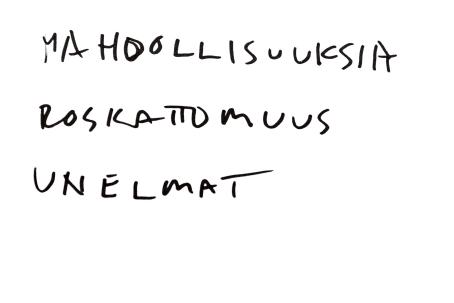 MAHDOLLISUUKSIA
ROSKATTOMUUS
UNELMAT